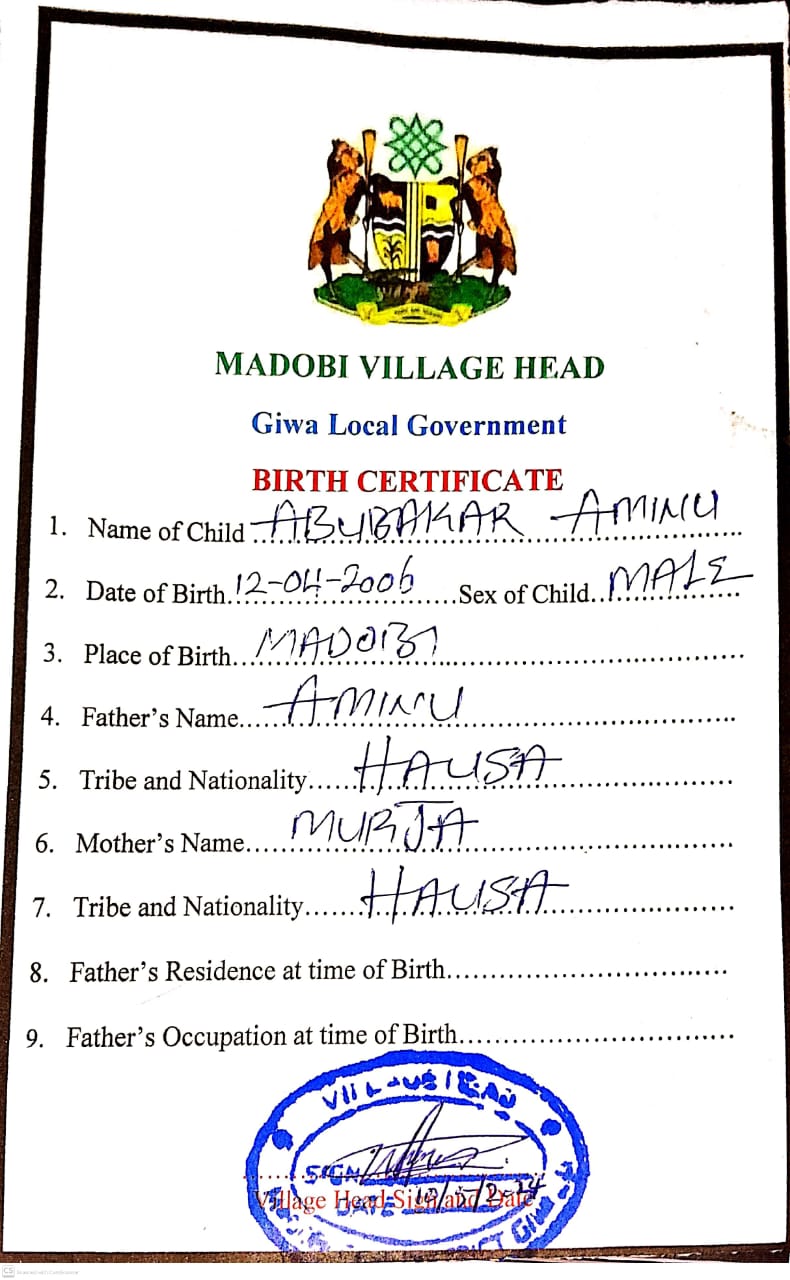 MADOBI VILLAGE HEAD
Giwa Local Government
BIRTH CERTIFICATE
1. Name of Child ABUBAKAR AMINU
2. Date of Birth 12-04-2006 Sex of Child MALE
3. Place of Birth MADOBI
4. Father's Name AMINU
5. Tribe and Nationality HAUSA
6. Mother's Name MURJA
7. Tribe and Nationality HAUSA
8. Father's Residence at time of Birth
9. Father's Occupation at time of Birth
SIGN
Village Head Sign and Date
DATE
GIWA
CS